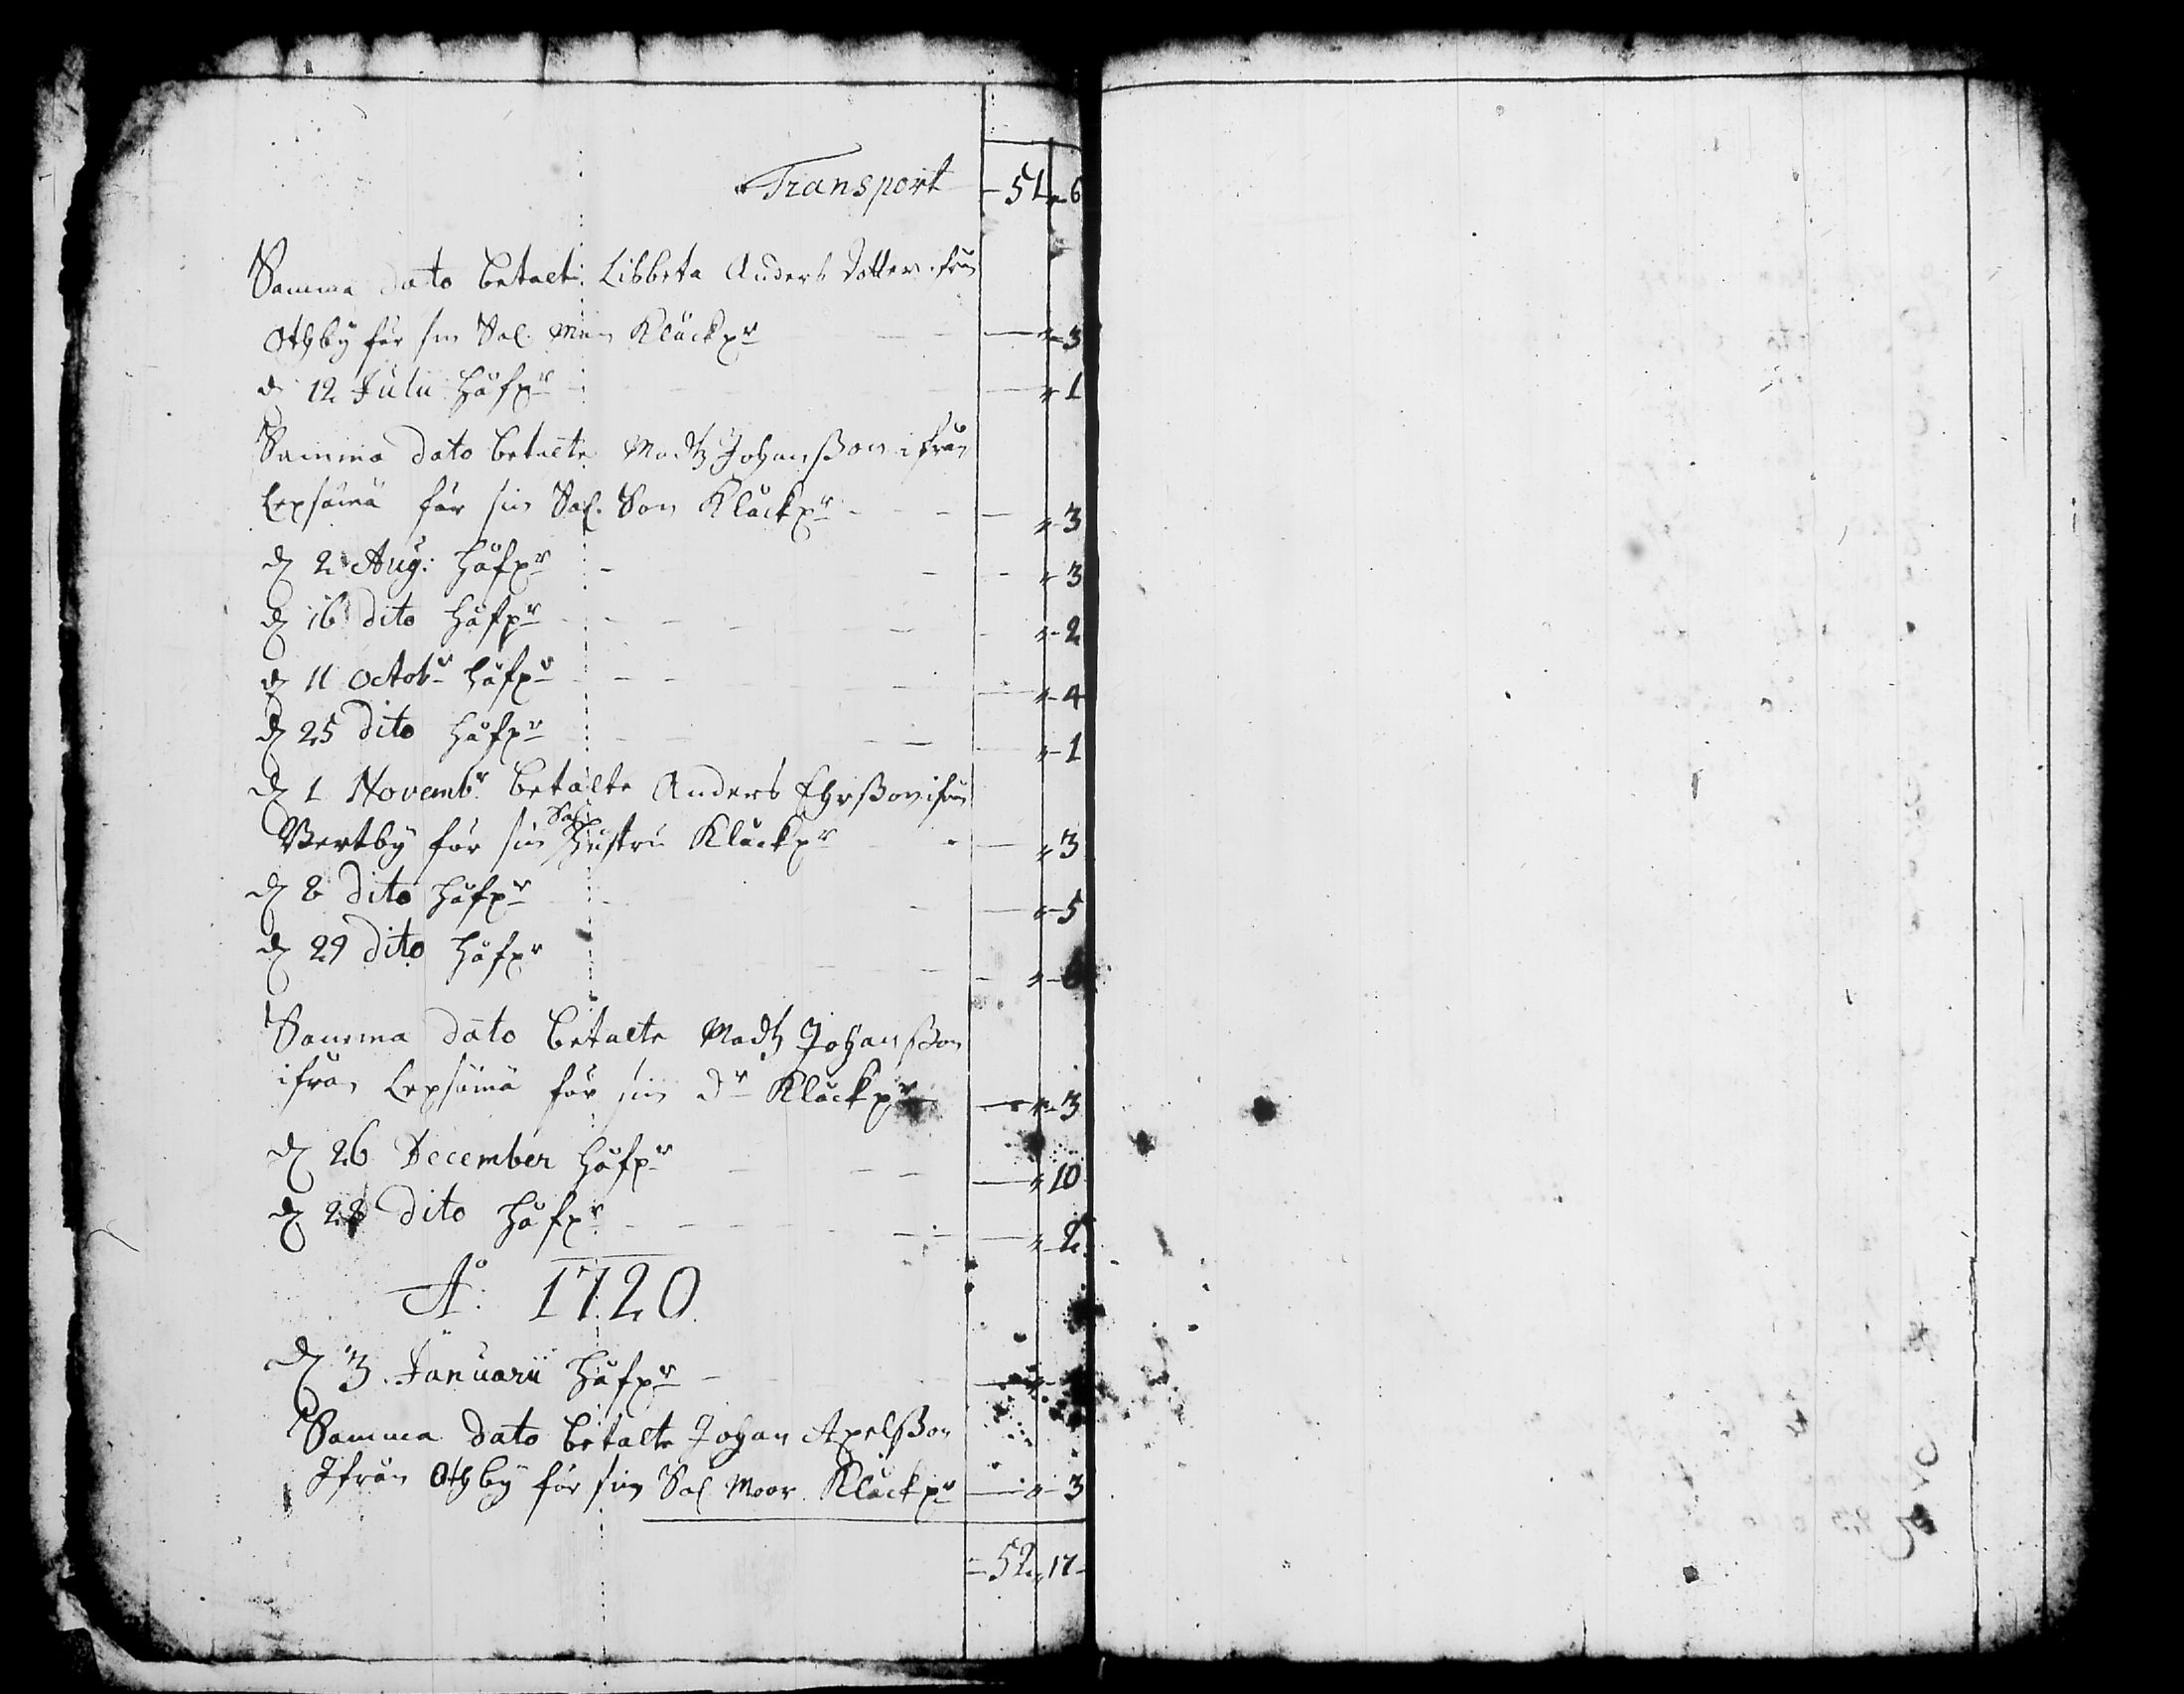 Transport - 51 „ 6
Samma dato betalte Lisbeta Anders dotter ifrån
Othby för sin Sal. Man Klåckpr — „ - 3
d 12 Julii håfpr — „ 1
Samma dato betalte Madtz Johanßon ifrån
Lepsämä för sin Sal. Son Klåckpr — „ - 3
d 2 Aug: håfpr - „ - 3
d 16 dito håfpr - „ - 2
d 11 Octobr håfpr — „ - 4
d 25 dito håfpr — „ - 1
d 1 Novembr betalte Anders Ehrßon ifrån
Vertby för sin Sal. Hustru Klåckpr — „ 3
d 8 dito håfpr — „ - 5
d 29 dito håfpr - „ -
Samma dato betalte Madtz Johanßon
ifrån Lepsämä för sin Dr Klåckpr — „ - 3
d 26 December håfpr — „ 10
d 28 dito håfpr — „ 2
Ao: 1720.
d 3. Januarii håfpr — „ -
Samma dato betalte Johan Axelßon
Ifrån Othby för sin Sal Moor Klåckpr — „ - 3
- 52 „ 17 -